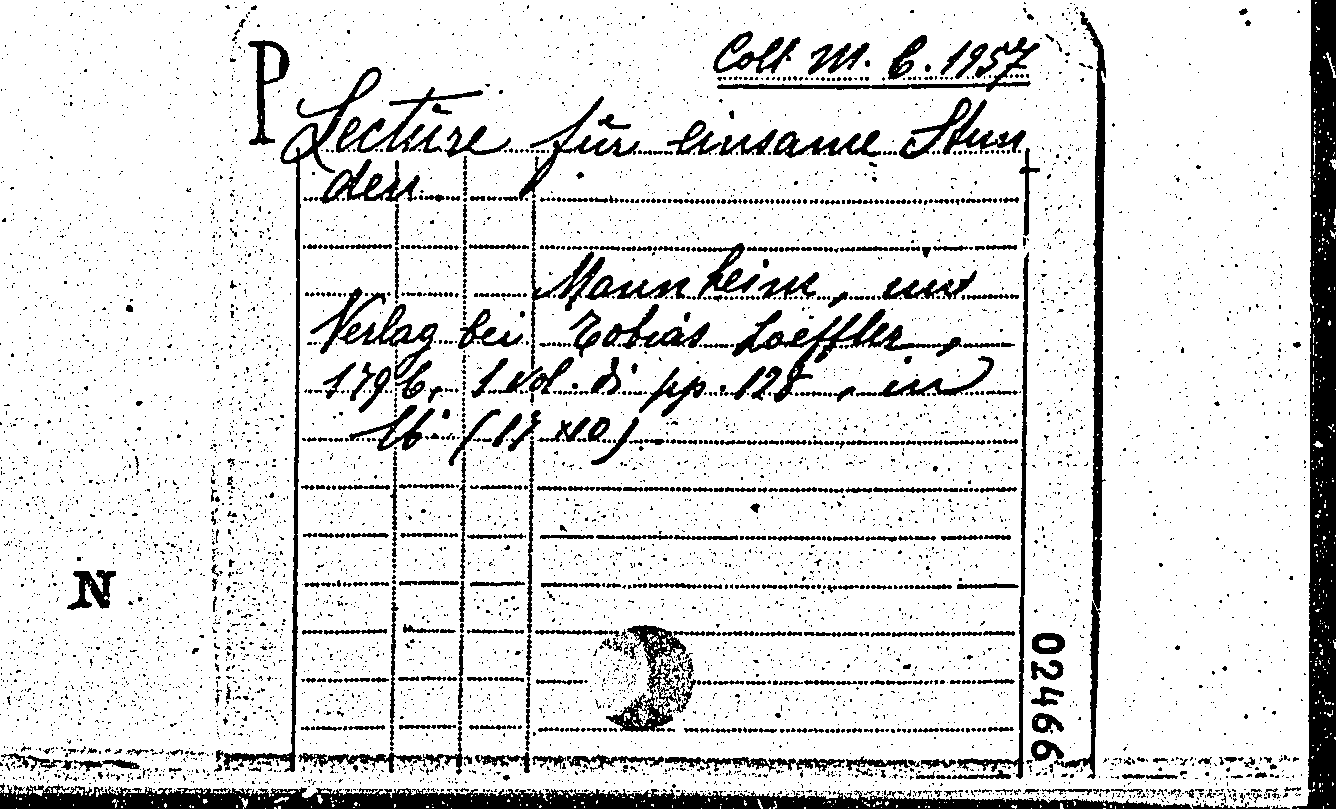 P
Coll. M. C. 1957
Lecture für einsame Stun
den
Mannheim, und
Verlag bei Tobias Loeffler,
1796, 1 vol. di pp. 128, in
16° (17 x10).
N
02466